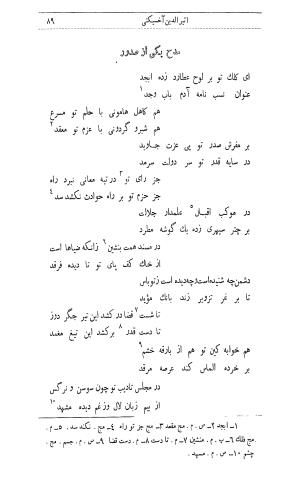 اثیر الدین آخسیکتی ۸۹
مدح یکی از صدور
ای کلك تو بر لوح عطارد زده ابجد
عنوان نسب نامه آدم باب وجد۱
هم کاهل هامونی با حلم تو مسرع
هم شبرو گردونی با عزم تو مقعد۲
بر مفرش صدر تو پی عزت جاوید
در سایه قدر تو سر دولت سرمد
جز رای تو۳ در تیه معانی نبرد راه
جز حزم تو بر راه حوادث نکشد سد۴
در موکب اقبال۵ علمدار جلالت
بر چتر سپهری زده یك گوشه مطرد
در مسند همت بنشین۶ زانکه ضیاها است
از خاك کف پای تو نا دیده فرقد
دشمن چه شنیده است و چه دیده است ز تو باس
تا بر غر تزویر زند بانك مؤید
تا شست۷ قضا در کشد این تیر جگر دوز
تا دست قدر۸ برکشد این تیغ مغمد
هم خوابه کین تو هم از بارقه خشم۹
بر خرده الماس کند عرصه مرقد
در مجلس تادیب تو چون سوسن و نرگس
از بیم زبان لال و زغم دیده مشهد۱۰
۱ـ ابجد ۲ـ ص . م . مج مقعد ۳ـ مج جز تو راه ۴ـ مج . نکند سد . ۵ـ م .
مج فلك ۶ـ ب . م . منشین ۷ـ م . تا دست ۸ـ م . دست قضا ۹ـ ص . م . جسم . مج .
چشم ۱۰ـ ص . م . مسهد .